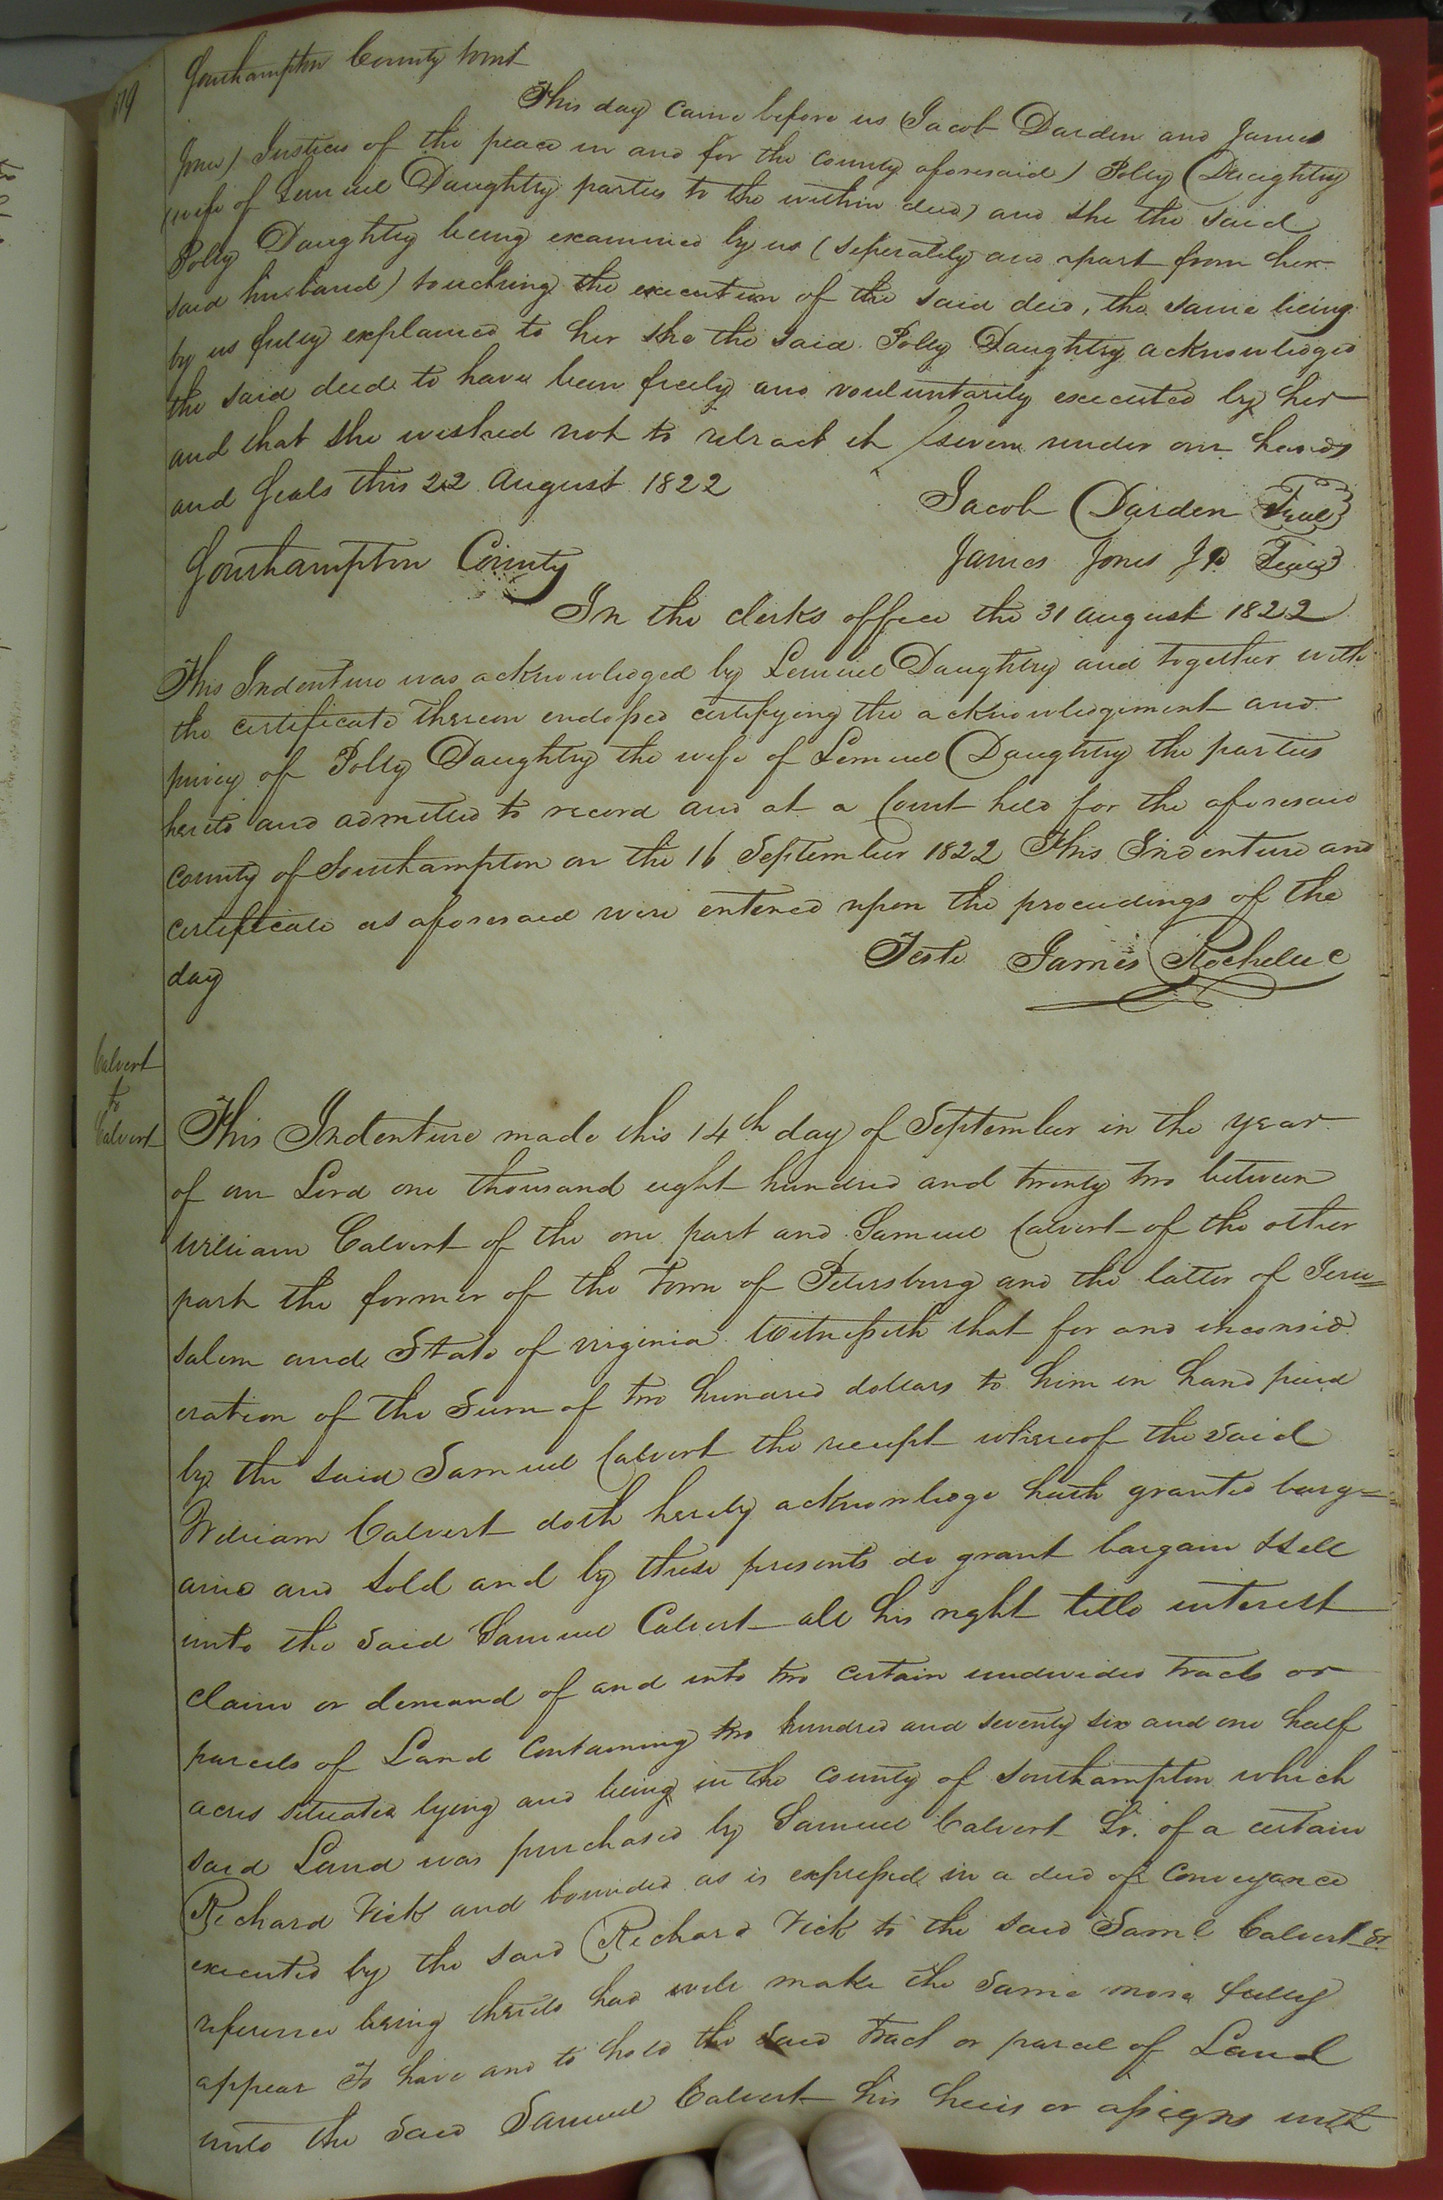 Southampton County towit
This day came before us Jacob Darden and James
Jones) Justices of the peace in and for the county aforesaid) Polly Daughtry
(wife of Lemuel Daughtry parties to the within deed) and she the said
Polly Daughtry being examined by us (seperately and apart from her
said husband) touching the execution of the said deed, the same being
by us fully explained to her she the said Polly Daughtry acknowledged
the said deed to have been freely and vouluntarily executed by her
and that she wished not to retract it Given under our hands
and Seals this 22 August 1822
Jacob Darden Seal
James Jones JP Seal
Southampton County
In the clerks office the 31 august 1822
This Indenture was acknowledged by Lemuel Daughtry and together with
the certificate thereon endossed certifying the acknowledgement and
privey of Polly Daughtry the wife of Lemuel Daughtry the parties
hereto and admitted to record and at a Court held for the aforesaid
county of Southampton on the 16 September 1822 This Indenture and
certificate as aforesaid were entered upon the proceedings of the
day
Teste James Rochelle C
Calvert
to
Calvert
This Indenture made this 14th day of September in the year
of our Lord one thousand eight hundred and twenty two between
William Calvert of the one part and Samuel Calvert of the other
part the former of the Town of Petersburg and the latter of Jeru=
salem and State of virginia Witnesseth that for and inconsid
eration of the Sum of two hundred dollars to him in hand paid
by the said Samuel Calvert the receipt whereof the said
William Calvert doth hereby acknowledge hath granted barg=
ained and sold and by these presents do grant bargain & sell
unto the said Samuel Calvert all his right title interest
claim or demand of and into two certain undivided tracts or
parcels of Land Containing two hundred and seventy six and one half
acres situated lying and being in the county of Southampton which
said Land was purchased by Samuel Calvert Sr. of a certain
Richard Vick and bounded as is expressed in a deed of Conveyance
executed by the said Richard Vick to the said Saml Calvert Sr.
reference being thereto had will make the same more fully
appear To have and to hold the said tract or parcel of Land
unto the said Samuel Calvert his heirs or assigns with